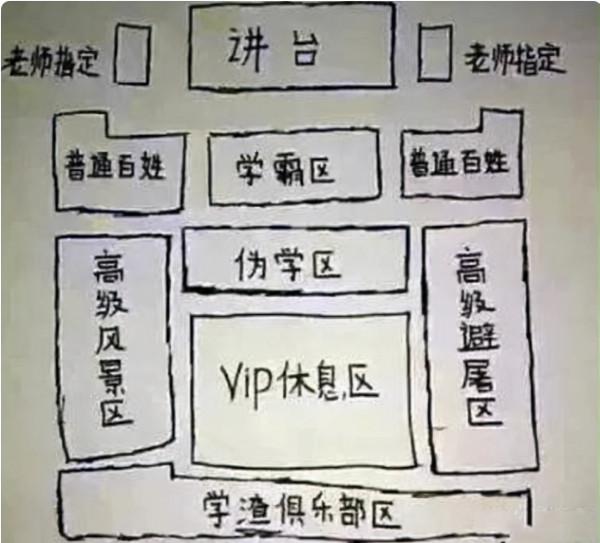 老师指定
讲台
老师指定
普通百姓
学霸区
普通百姓
高级风景区
伪学区
高级避屠区
Vip休息区
学渣俱乐部区